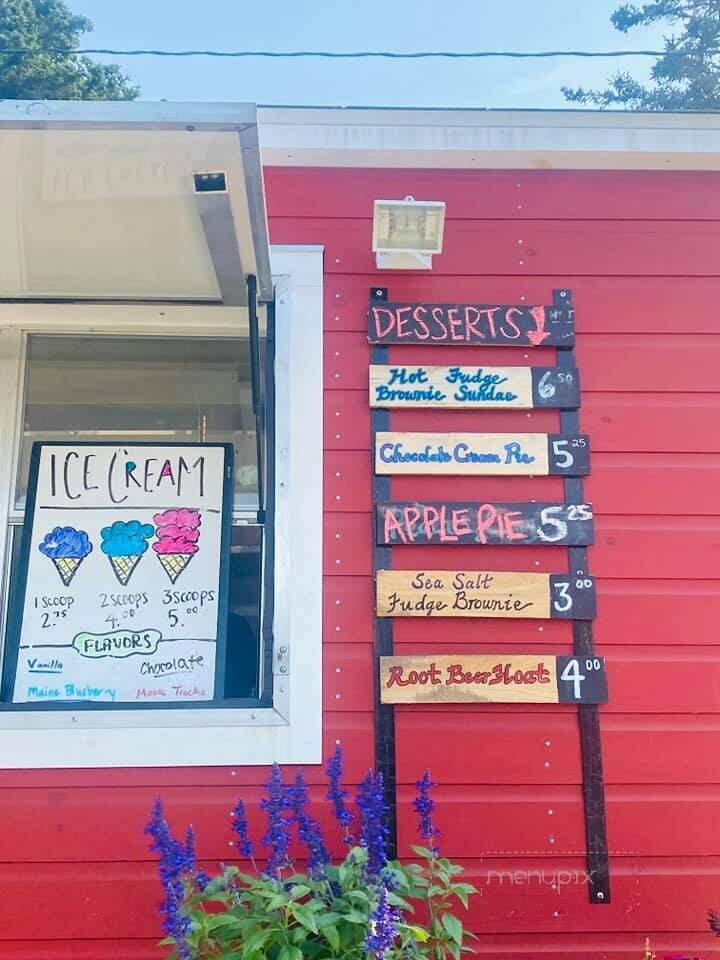 ICE CREAM
1 SCOOP 2 SCOOPS 3 SCOOPS
2.75 4.00 5.00
FLAVORS
Vanilla Chocolate
Maine Blueberry Moose Tracks
DESSERTS
Hot Fudge
Brownie Sundae 6 50
Chocolate Cream Pie 5 25
APPLE PIE 5 25
Sea Salt
Fudge Brownie 3 00
Root Beer Float 4 00
menupix